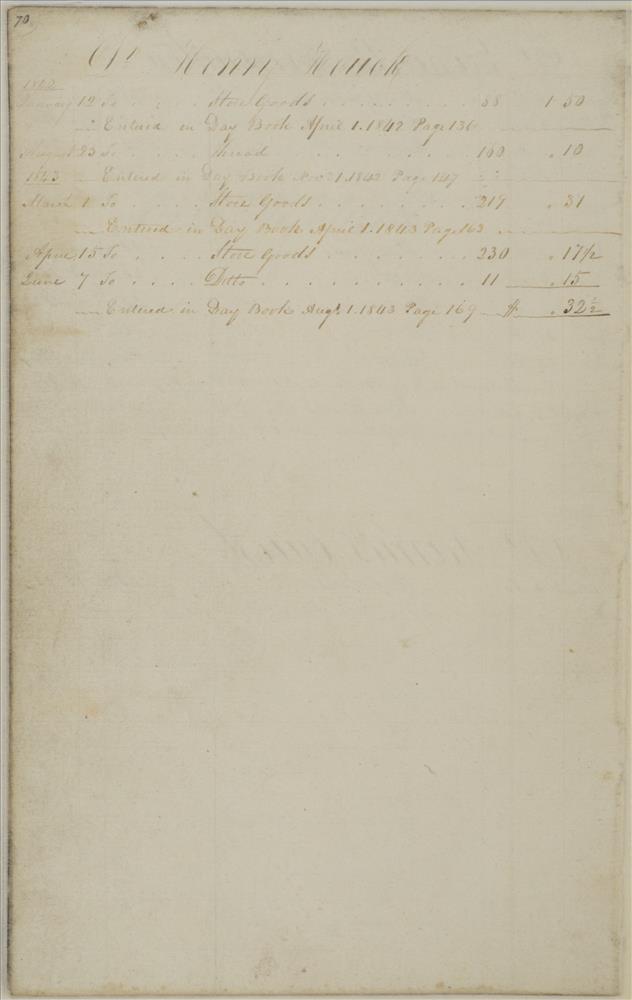 70
Dr Henry Houck
1842
January 12 To . . . . Store Goods . . . . . . . . . 58 1 50
— Entered in Day Book April 1. 1842 Page 136
August 23 To . . . . thread . . . . . . . . 160 . 10
1843 — Entered in Day Book Nov 21. 1842 Page 147
March 1 To . . . . Store Goods . . . . . . . . 217 . 31
— Entered in Day Book April 1. 1843 Page 163
April 15 To . . . . Store Goods . . . . . . . . 230 . 17 1/2
June 7 To . . . . Ditto . . . . . . . . . . 11 . 15
— Entered in Day Book Augt. 1. 1843 Page 169 — $ . 32 1/2